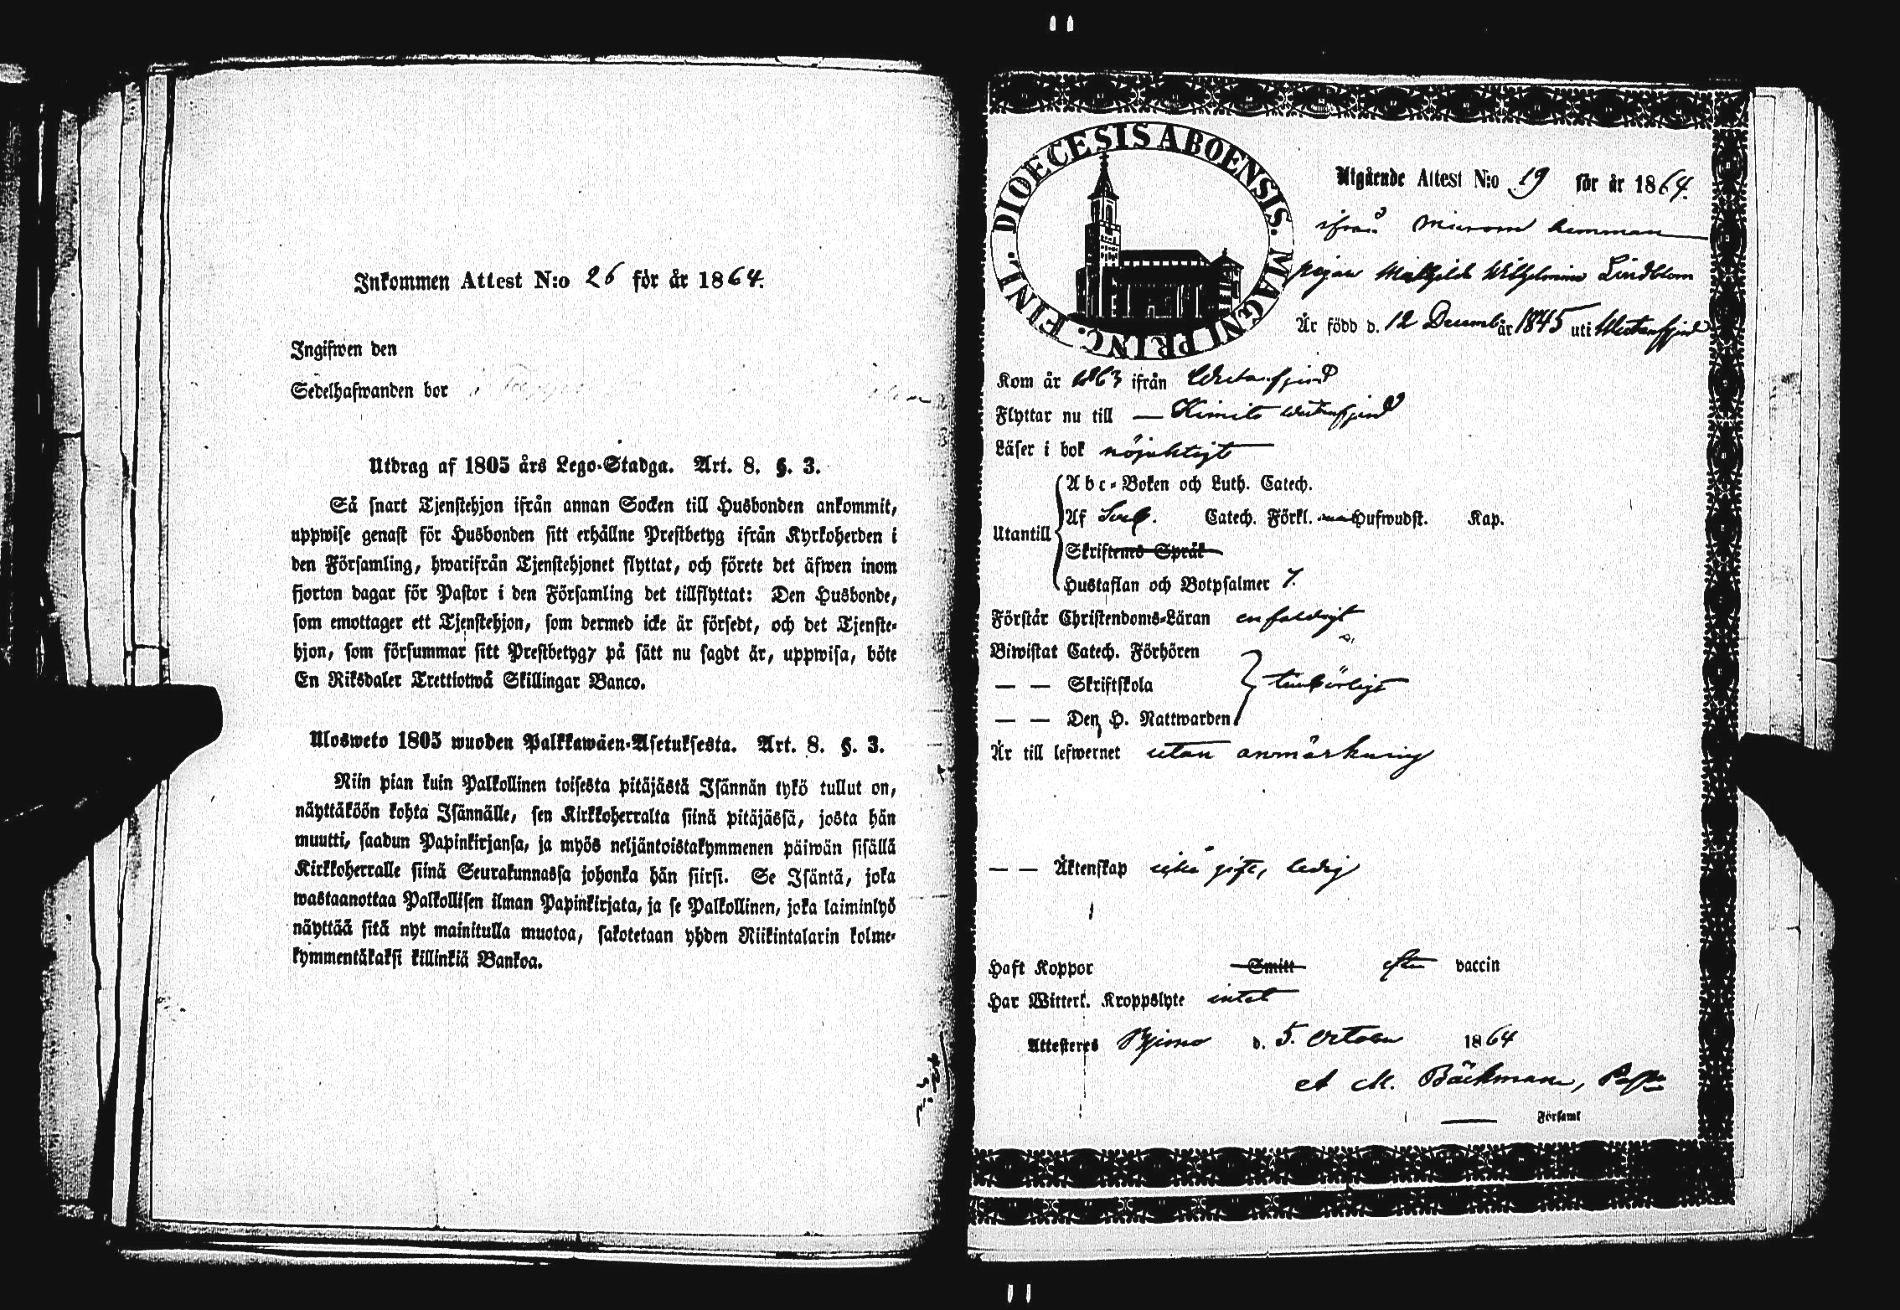 Inkommen Attest N:o 26 för år 1864.
Ingifwen den
Sedelhafwanden bor
Utdrag af 1805 års Lego-Stadga. Art. 8. §. 3.
Så snart Tjenstehjon ifrån annan Socken till Husbonden ankommit,
uppwise genast för Husbonden sitt erhållne Prestbetyg ifrån Kyrkoherden i
den Församling, hwarifrån Tjenstehjonet flyttat, och förete det äfwen inom
fjorton dagar för Pastor i den Församling det tillflyttat: Den Husbonde,
som emottager ett Tjenstehjon, som dermed icke är försedt, och det Tjenste-
hjon, som försummar sitt Prestbetyg, på sätt nu sagdt är, uppwisa, böte
En Riksdaler Trettiotwå Skillingar Banco.
Ulosweto 1805 wuoden Palkkawäen-Asetuksesta. Art. 8. §. 3.
Niin pian kuin Palkollinen toisesta pitäjästä Isännän tykö tullut on,
näyttäköön kohta Isännälle, sen Kirkkoherralta siinä pitäjässä, josta hän
muutti, saadun Papinkirjansa, ja myös neljäntoistakymmenen päiwän sisällä
Kirkkoherralle siinä Seurakunnassa johonka hän siirsi. Se Isäntä, joka
wastaanottaa Palkollisen ilman Papinkirjata, ja se Palkollinen, joka laiminlyö
näyttää sitä nyt mainitulla muotoa, sakotetaan yhden Riikintalarin kolme-
kymmentäkaksi killinkiä Bankoa.
DIOECESIS ABOENSIS. MAGNI PRINC. FINL.
Utgående Attest N:o 19 för år 1864.
ifrån hemman
pigan Mathilda Wilhelmina Lindblom
Är född d. 12 Decemb. år 1845 uti Westanfjerd
Kom år 1863 ifrån Westanfjerd
Flyttar nu till — Kimito Westanfjerd
Läser i bok nöjaktigt
Utantill
Abc-Boken och Luth. Catech.
Af Catech. Förkl. Hufwudst. Kap.
Skriftens Språk
Hustaflan och Botpsalmer 7
Förstår Christendoms-Läran enfaldigt
Biwistat Catech. Förhören
— — Skriftskola tillbörligt
— — Den H. Nattwarden
Är till lefwernet utan anmärkning
— — Äktenskap icke gift, ledig
Haft Koppor Smitt efter vaccin
Har Witterl. Kroppslyte intet
Attesteres d. 5. October 1864
A M. Bäckman,
Församl